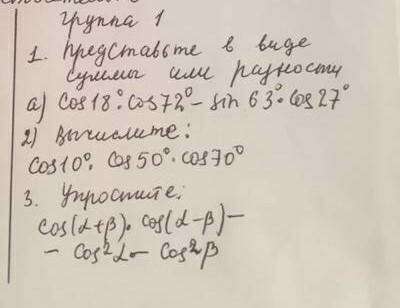 группа 1
1. Представьте в виде
суммы или разности
а) cos18°·cos72° – sin 63°·cos27°
2) Вычислите:
cos10°· cos50°·cos70°
3. Упростите:
cos(α+β)· cos(α–β)–
– cos²α – cos²β